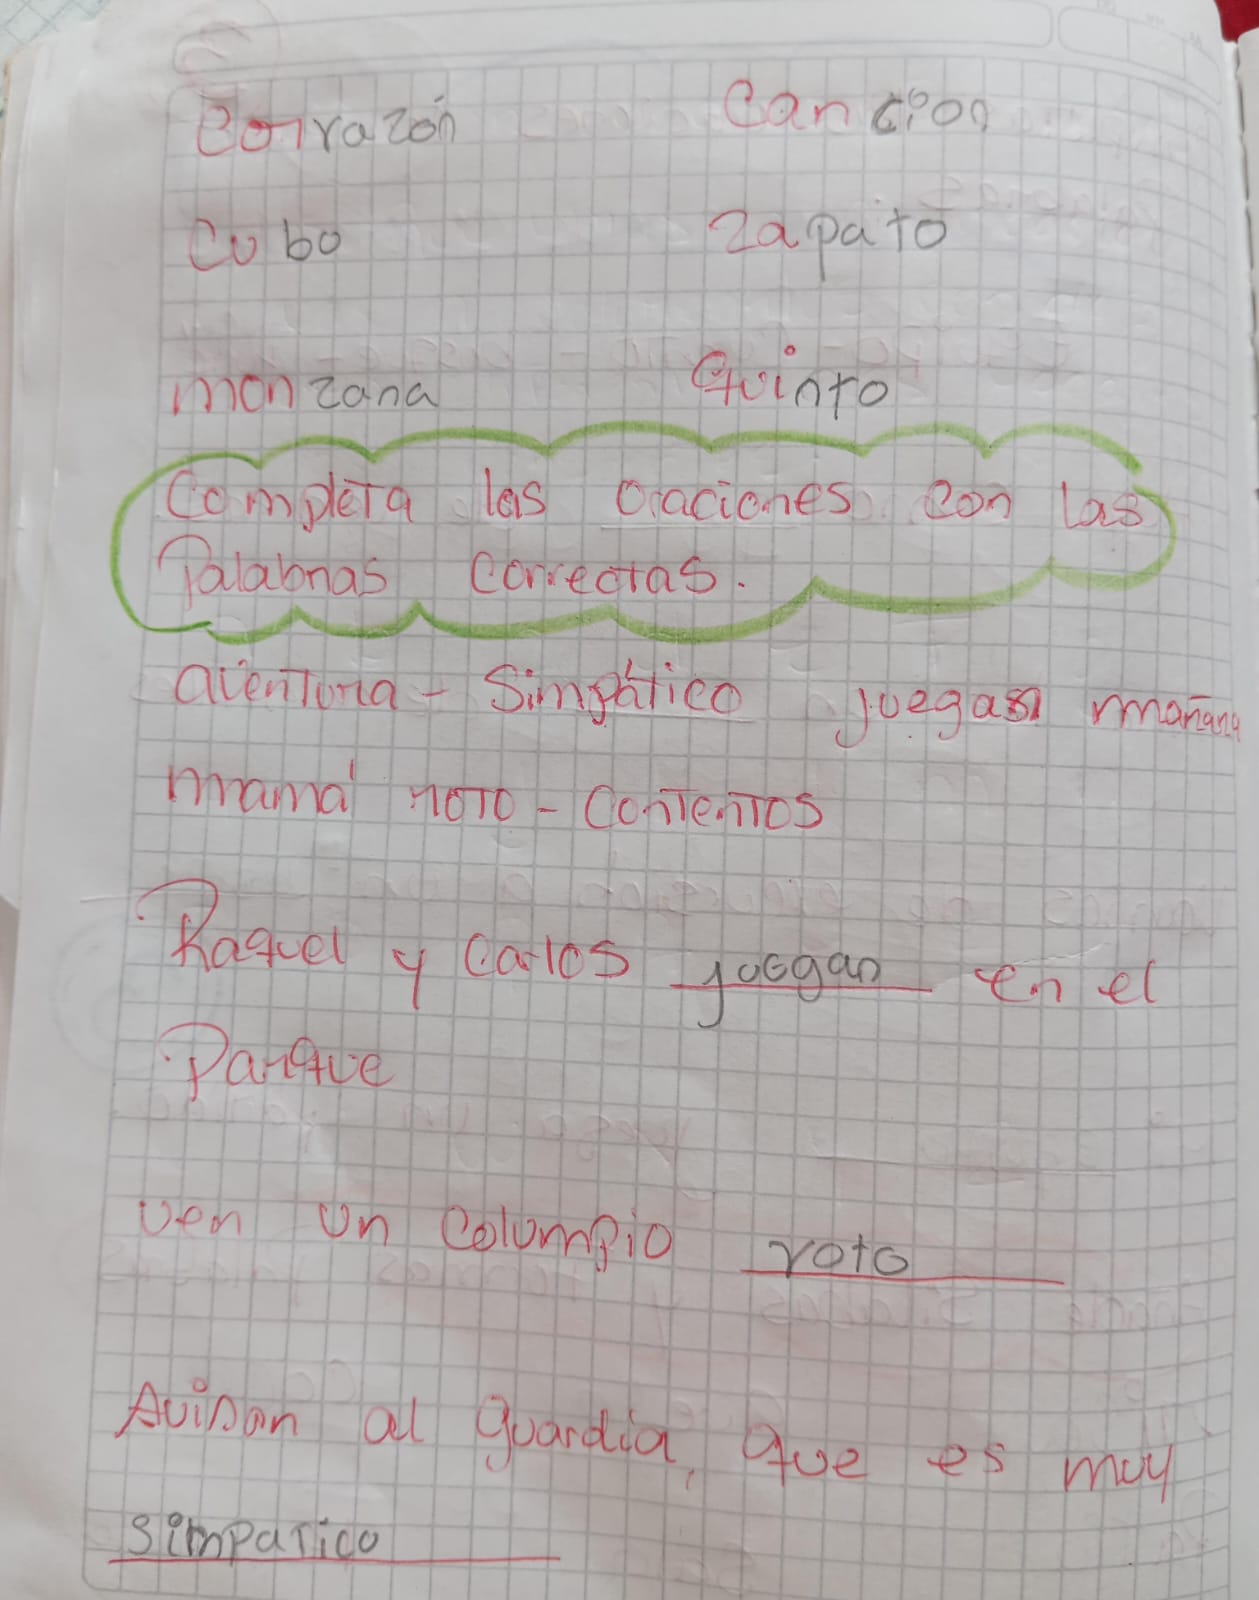 Corazón Cancion
Cubo Zapato
manzana Quinto
Completa las oraciones con las
Palabras correctas.
aventura - Simpático juegan mañana
mamá roto - Contentos
Raquel y Carlos juegan en el
Parque
ven un Columpio roto
Avisan al guardia, que es muy
simpatico